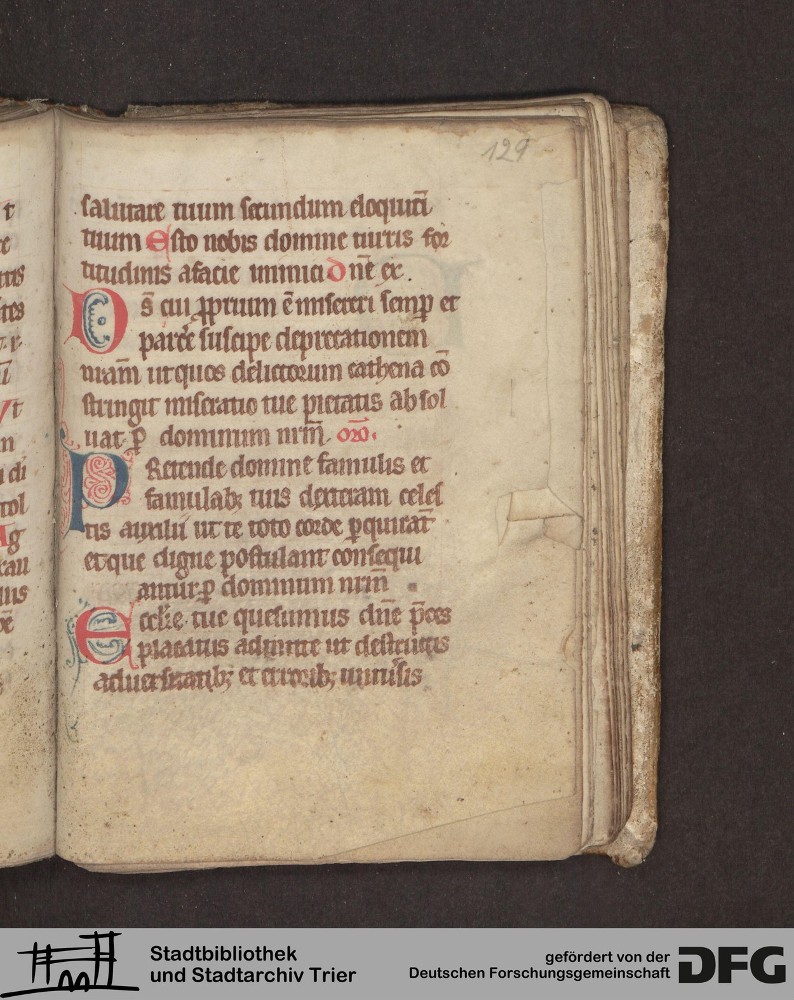 129
salutare tuum secundum eloquiū
tuum Esto nobis domine turris for
titudinis afacie inimici Dn̄e ex.
Ds̄ cui ꝓprium ē misereri semꝑ et
parcē suscipe deprecationem
nr̄am ut quos delictorum cathena cō
stringit miseratio tue pietatis absol
uat. P dominum nrm̄. or̄o.
Pretende domine famulis et
famulabꝫ tuis dexteram celes
tis auxilii ut te toto corde ꝑquirāt
et que digne postulant consequi
antur. ꝑ dominum nrm̄
Eccl̄ie tue quesumus dn̄e p̄ces
placatus admitte ut destructis
aduersitatibꝫ et erroribꝫ uniu͛sis
Stadtbibliothek
und Stadtarchiv Trier
gefördert von der
Deutschen Forschungsgemeinschaft
DFG